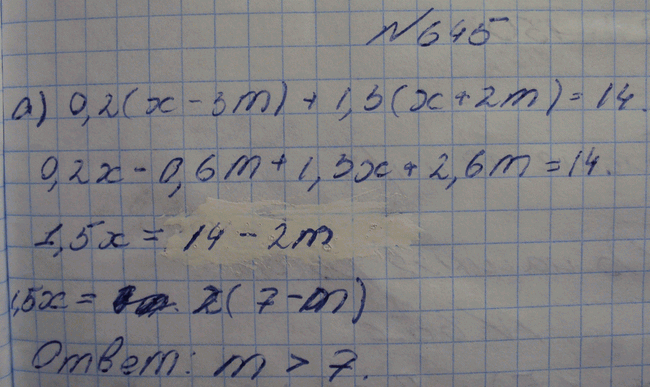 №645
а) 0,2(x - 3m) + 1,3(x + 2m) = 14.
0,2x - 0,6m + 1,3x + 2,6m = 14.
1,5x = 14 - 2m
,5x = 2(7 - m)
Ответ: m > 7.